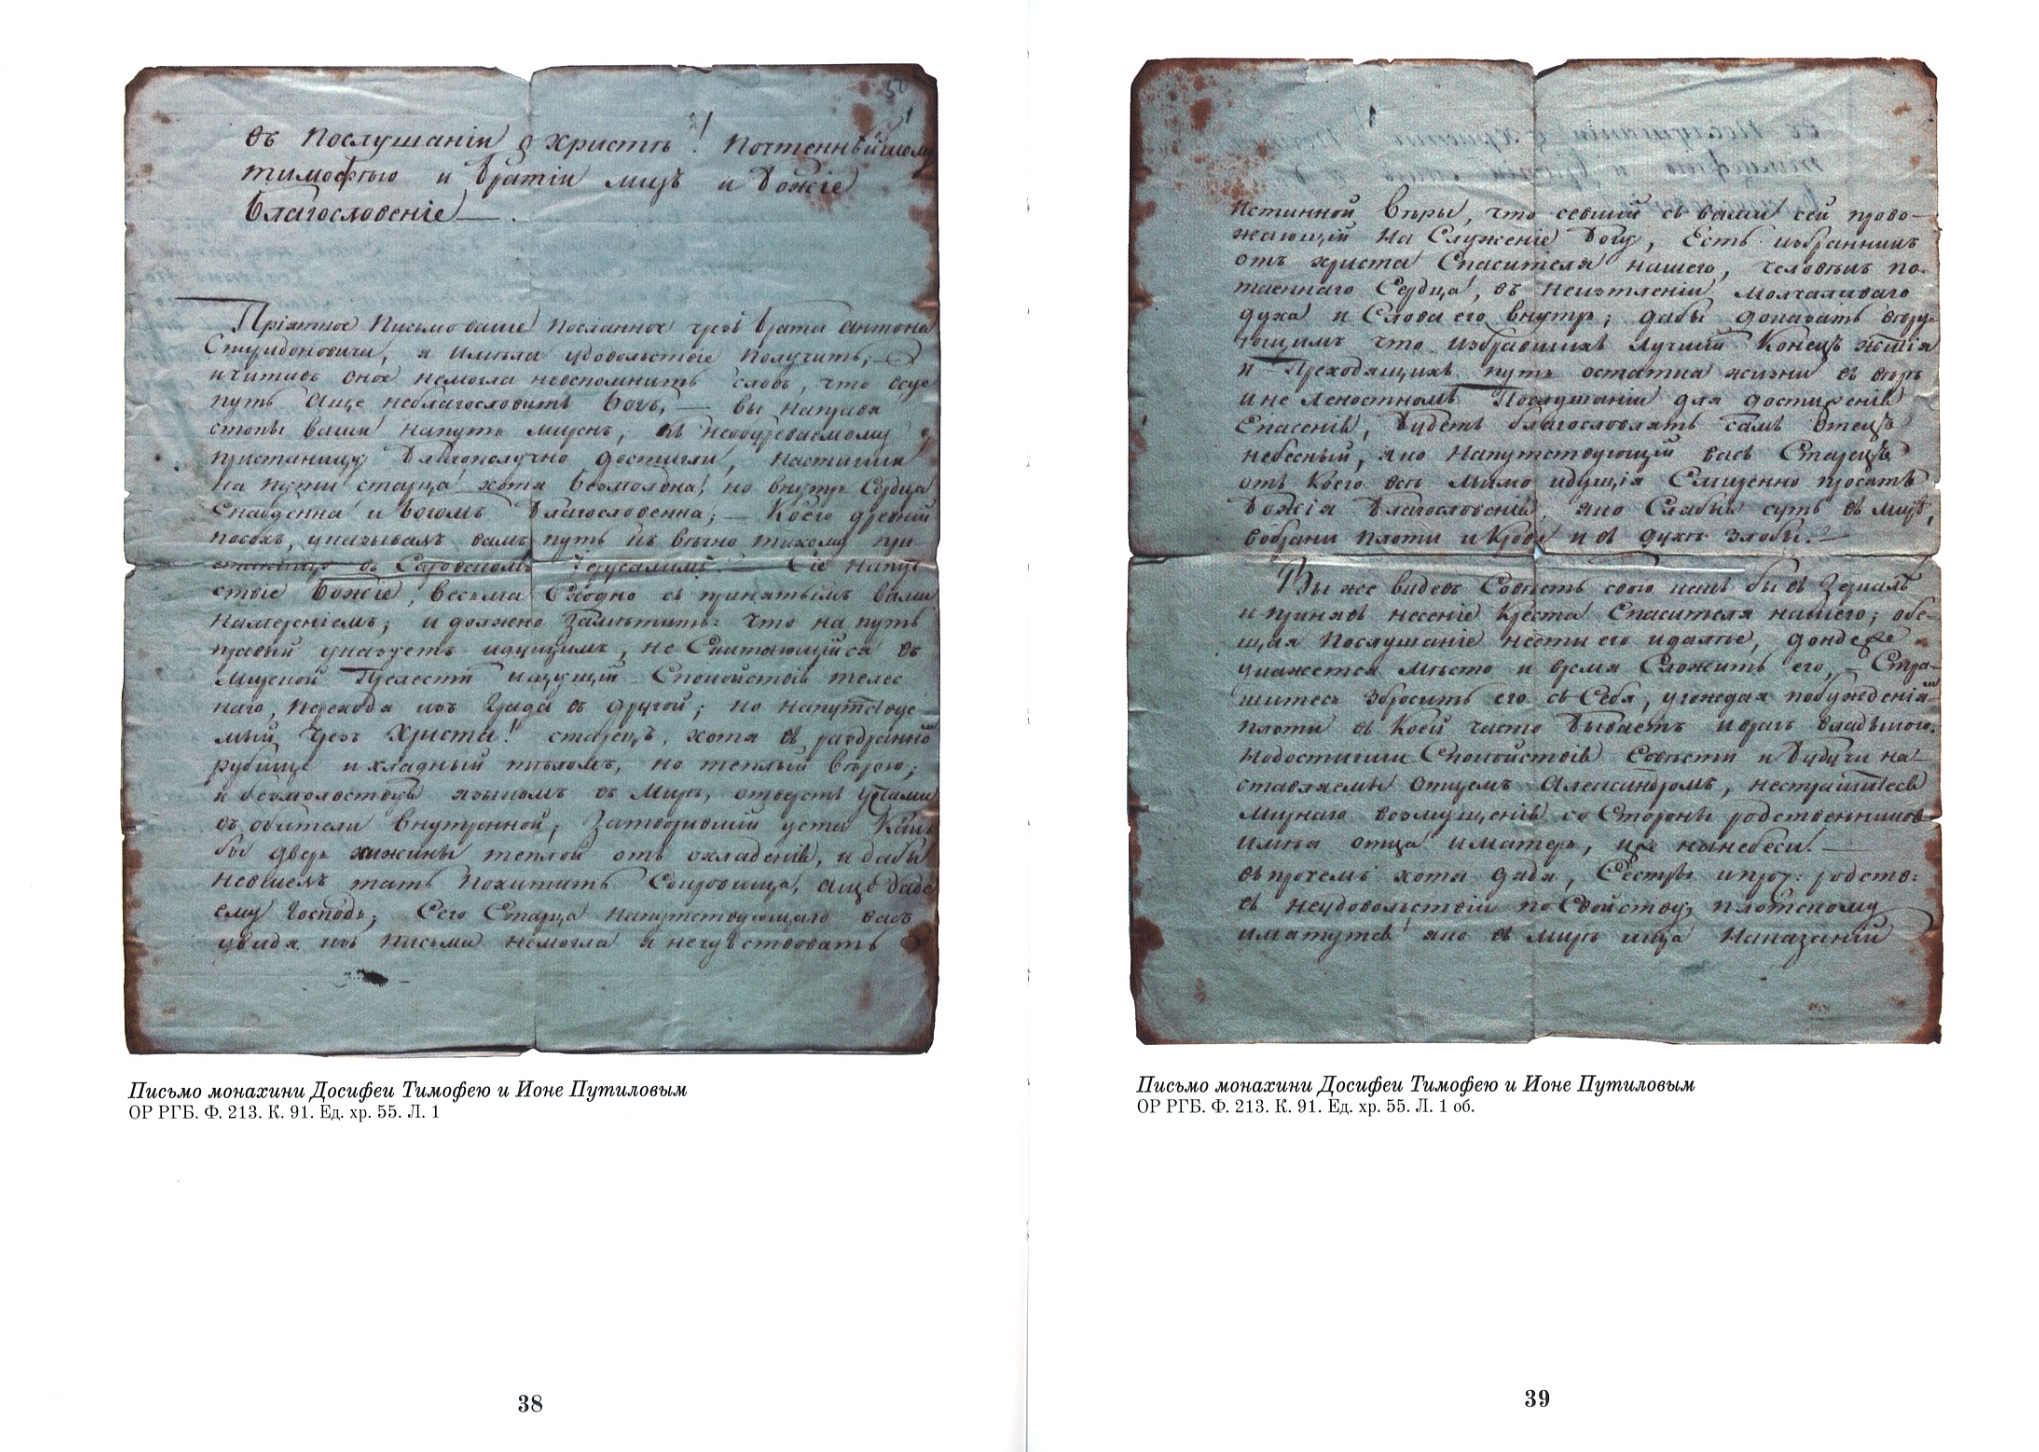 въ Послушаніи о Христѣ! Почтеннѣйшему
тимофѣю и братіи миръ и Божіе
Благословеніе —.
Пріятное Письмо ваше посланное чрезъ брата антона
Спиридоновича, я имѣла удовольствіе получить;
и читавъ оное немогла невспомнить словъ, что всуе
путь аще неблагословитъ Богъ, — вы направя
стопы ваши напуть миренъ, къ необуреваемому
пристанищу благополучно достигли, настигши
на пути старца хотя безмолвна, но внутрь Сердца
Снабденна и Богомъ Благословенна; — Коего древній
посохъ, указывалъ вамъ путь къ вѣчно тихому при
станищу въ Саровскомъ Іерусалимѣ. — Сіе напут
ствіе Божіе, весьма Сходно съ принятымъ вами
намѣреніемъ; и должно Замѣтить: что на путь
правый указуетъ идущимъ, не Считающійся въ
Мирской Прелести ищущій Спокойствія телес
наго, перехода изъ Града въ другой; но напутствуе
мый чрезъ Христа! старецъ, хотя въ раздранно
рубище и хладный тѣломъ, но теплый вѣрою;
и безмолвствуя языкомъ въ Мирѣ, отверстъ устами
въ обители внутренней; Затворившій уста Какъ
бы дверь хижины теплой отъ охлажденія, и дабы
невшелъ тать Похитить Сокровища, аще даде
ему Господь; Сего Старца напутствующаго васъ
увидя изъ письма немогла я нечувствовать
Письмо монахини Досифеи Тимофею и Ионе Путиловым
ОР РГБ. Ф. 213. К. 91. Ед. хр. 55. Л. 1
38
Истинной Вѣры, что севшій съ вами сей прово-
жающій на Служеніе Богу, Есть избранникъ
отъ христа Спасителя нашего, человѣкъ по-
таеннаго Сердца, въ неистлѣніи молчаливаго
духа и Слова его внутрь; дабы доказать вѣру-
ющимъ что избравшихъ лучшій Конецъ житія
и Преходящихъ путь остатка жизни въ вѣрѣ
и не леностномъ Послушаніи для достиженія
Спасенія, Будетъ благословлять самъ Отецъ
небесный, яко Напутствующій васъ Старецъ
отъ Коего всѣ мимо идущія Смиренно просятъ
Божія Благословенія, яко Слабы суть въ мирѣ,
собрани плоти и Крови и въ духѣ злобы. —
Вы же видевъ Совѣсть свою какъ бы въ Зеркалѣ
и принявъ несеніе Креста Спасителя нашего; обе-
щая Послушаніе нести его и далѣе, дондеже
укажется мѣсто и время Сложить его, — Стра-
шитесь збросить его съ Себя, угождая побужденіямъ
плоти въ Коей часто бываетъ и врагъ владыкою.
Но достигши Спокойствія Совѣсти и Будучи на-
ставляемы Отцемъ Александромъ, нестрашитесь
Мирнаго возмущенія со Стороны родственниковъ
имѣя отца и матерь, ихъ на небеси. —
въ прочемъ хотя дядя, Сестры и проч: родств:
въ неудовольствіи по Свойству плотскому
и мятутся яко въ Мирѣ ища Наказаній
Письмо монахини Досифеи Тимофею и Ионе Путиловым
ОР РГБ. Ф. 213. К. 91. Ед. хр. 55. Л. 1 об.
39